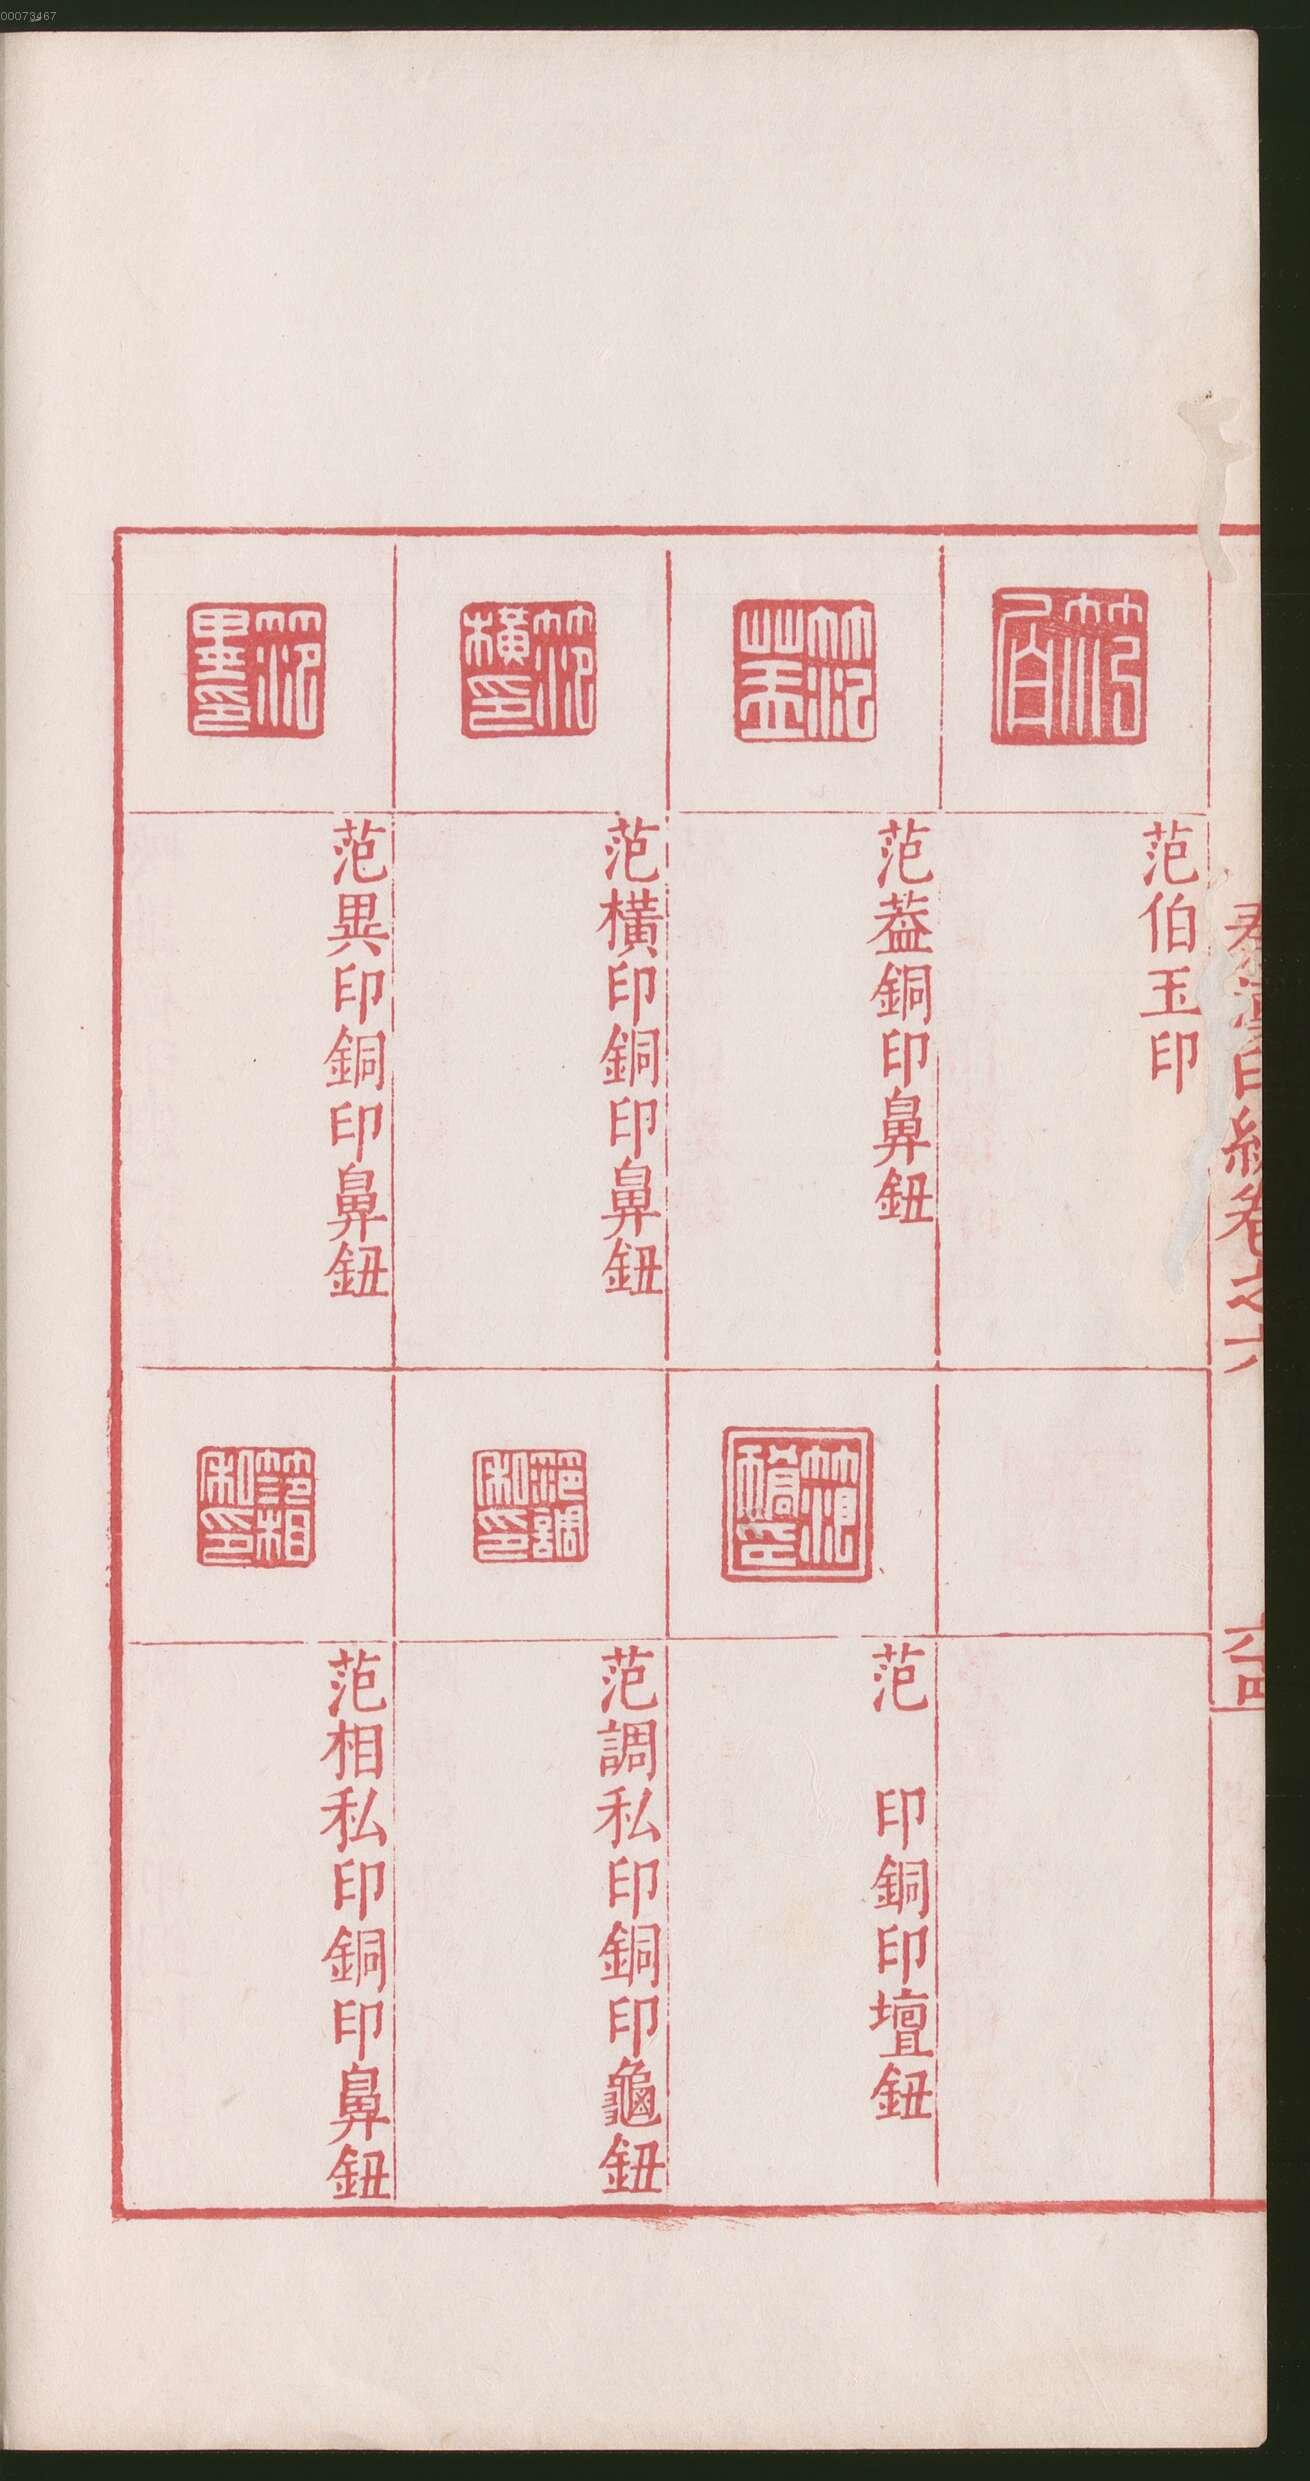 00073467
范伯玉印
范葢銅印鼻鈕
范橫印銅印鼻鈕
范異印銅印鼻鈕
范 印銅印壇鈕
范調私印銅印龜鈕
范相私印銅印鼻鈕
卷之六